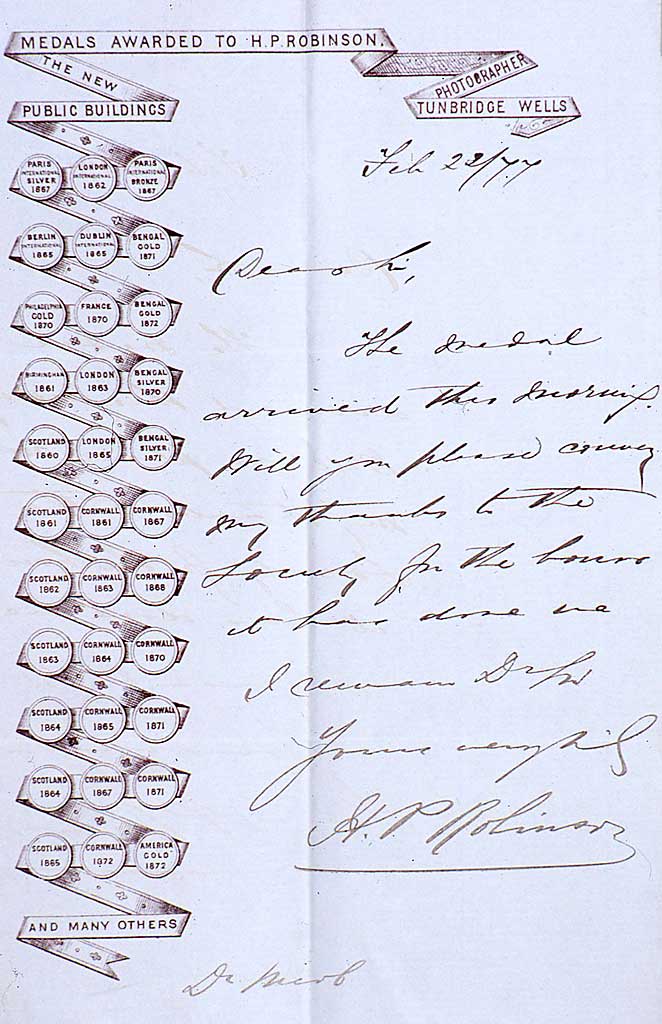 MEDALS AWARDED TO H.P. ROBINSON.
PHOTOGRAPHER
THE NEW
PUBLIC BUILDINGS
TUNBRIDGE WELLS
PARIS INTERNATIONAL SILVER 1867
LONDON INTERNATIONAL 1862
PARIS INTERNATIONAL BRONZE 1867
BERLIN INTERNATIONAL 1865
DUBLIN INTERNATIONAL 1865
BENGAL GOLD 1871
PHILADELPHIA GOLD 1870
FRANCE 1870
BENGAL GOLD 1872
BIRMINGHAM 1861
LONDON 1863
BENGAL SILVER 1870
SCOTLAND 1860
LONDON 1865
BENGAL SILVER 1871
SCOTLAND 1861
CORNWALL 1861
CORNWALL 1867
SCOTLAND 1862
CORNWALL 1863
CORNWALL 1868
SCOTLAND 1863
CORNWALL 1864
CORNWALL 1870
SCOTLAND 1864
CORNWALL 1865
CORNWALL 1871
SCOTLAND 1864
CORNWALL 1867
CORNWALL 1871
SCOTLAND 1865
CORNWALL 1872
AMERICA GOLD 1872
AND MANY OTHERS
Feb 22/77
Dear Sir,
The medal
arrived this morning.
Will you please convey
my thanks to the
Society for the honor
it has done me
I remain Dr Sir
Yours very
H. P. Robinson
Dr